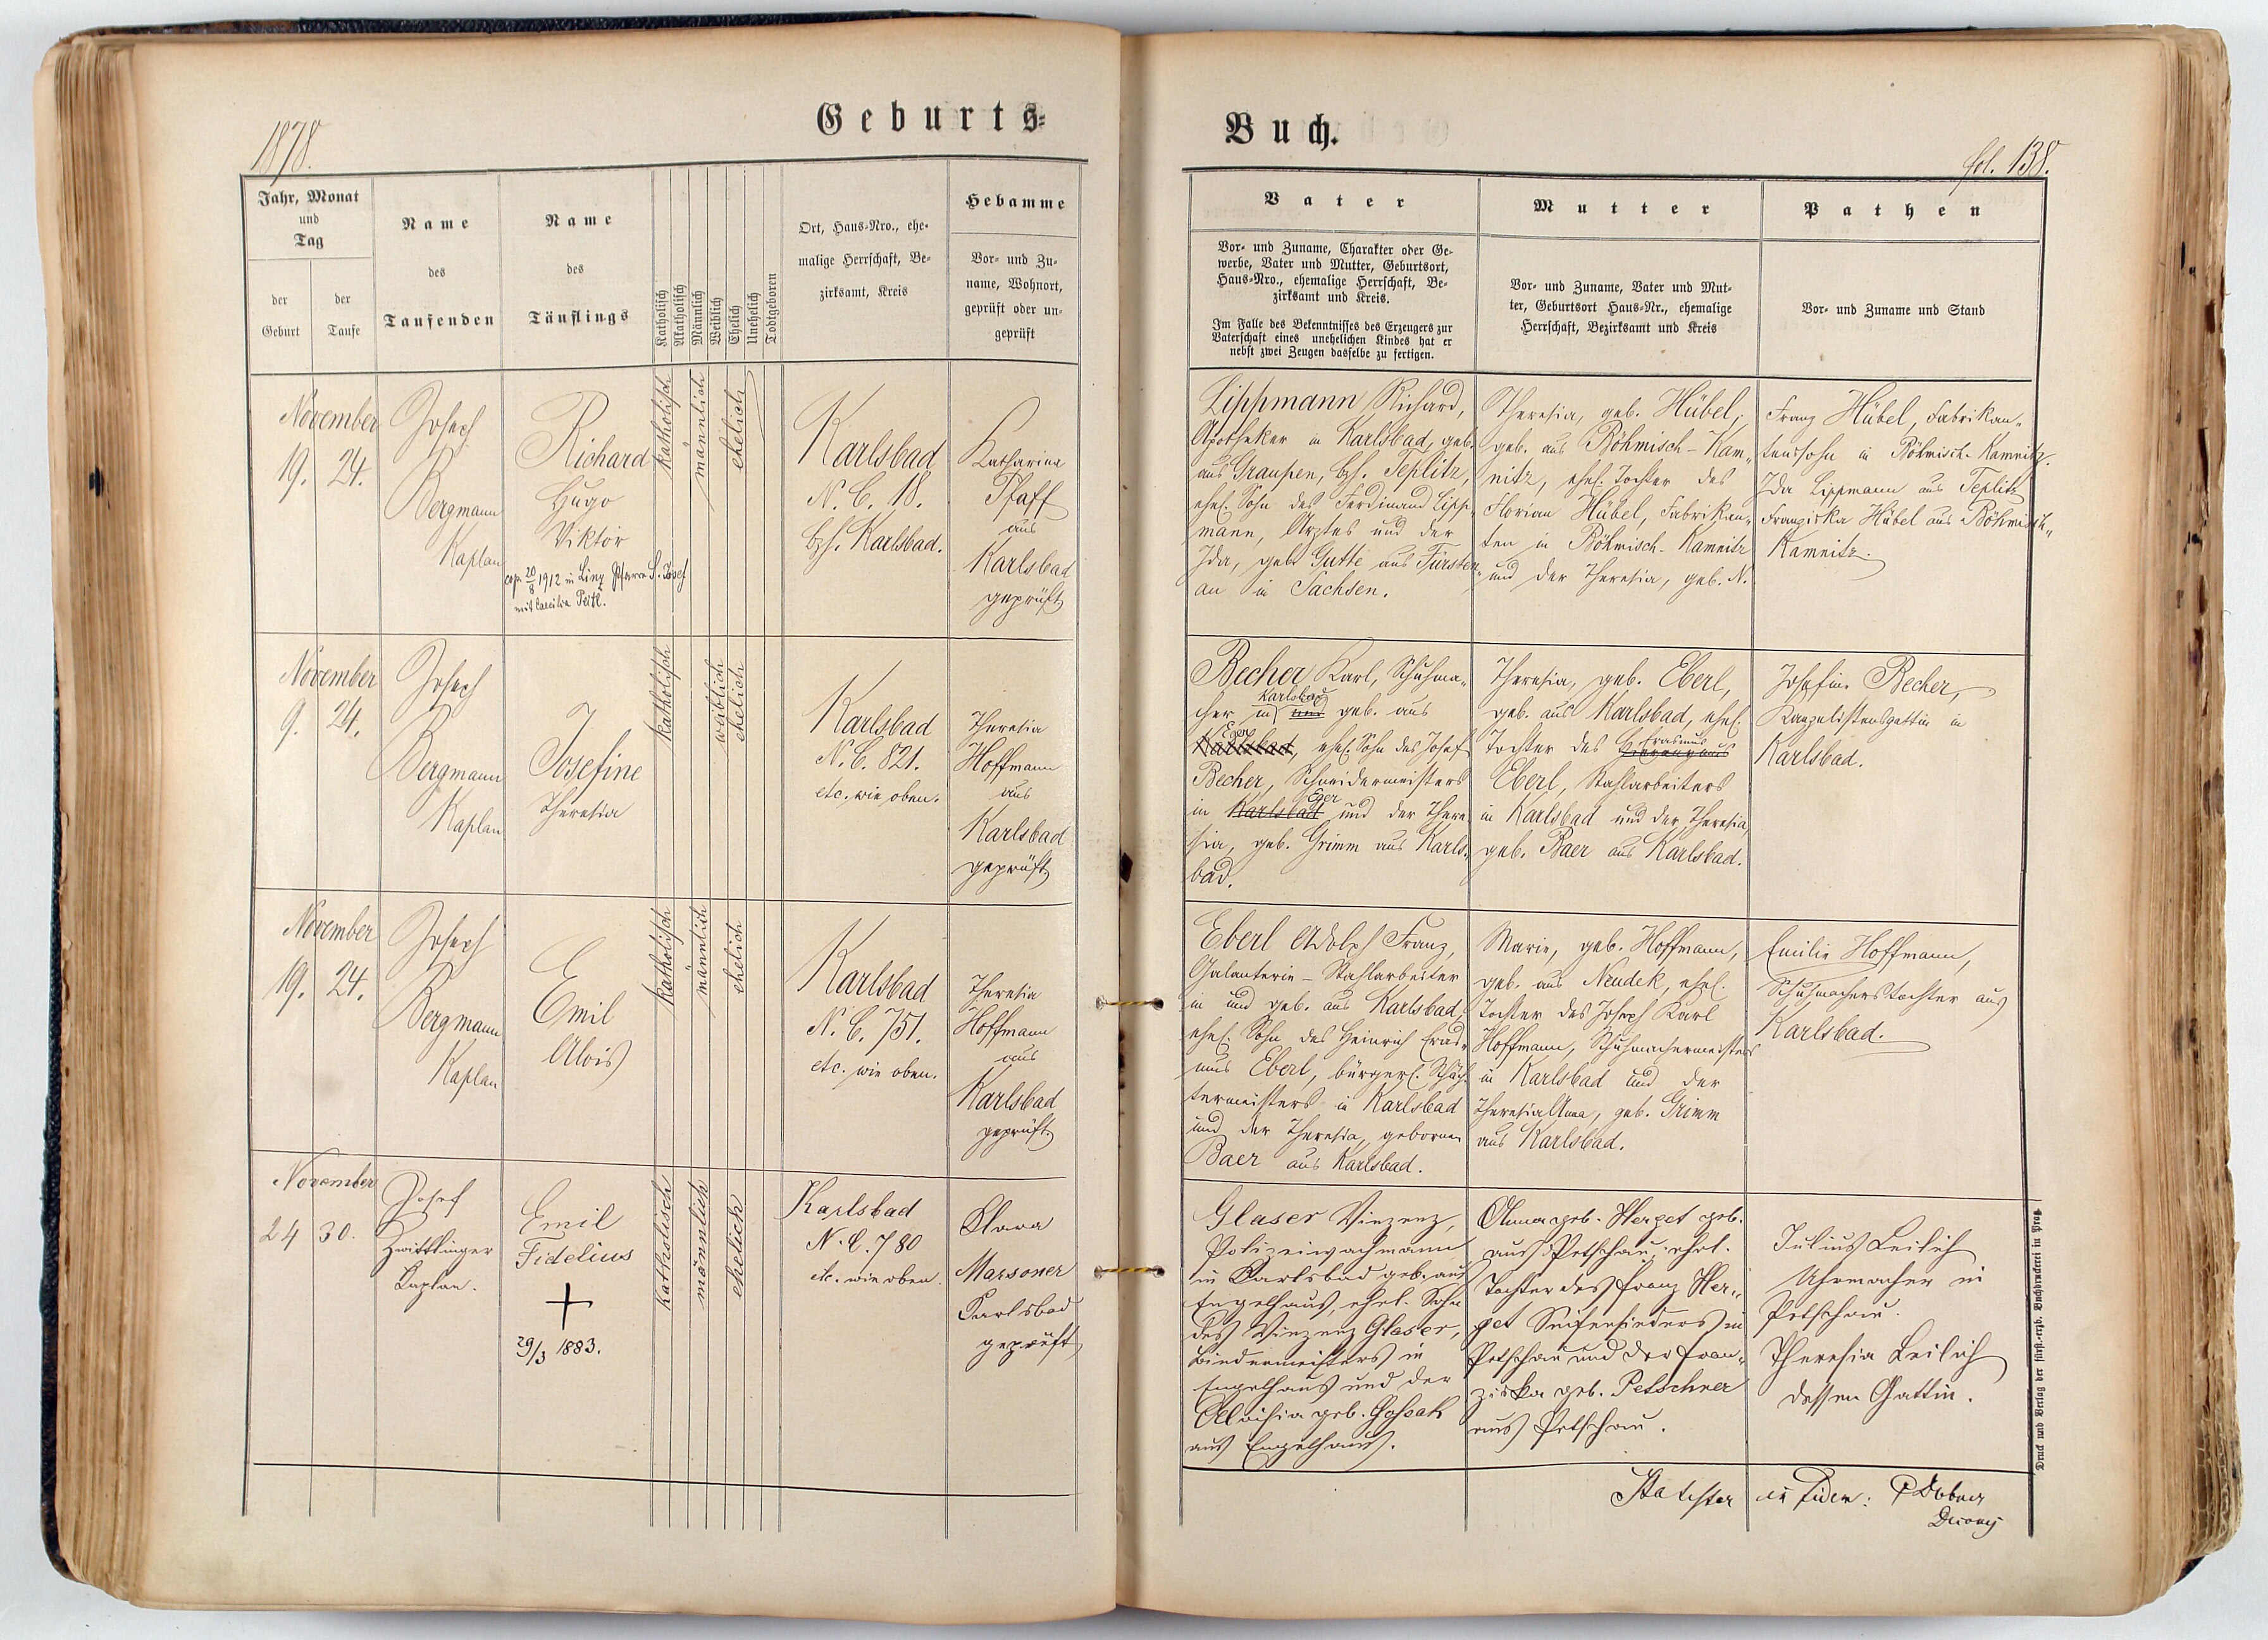 1878.
Geburts-
Jahr, Monat
und
Tag
der
Geburt
der
Taufe
Name
des
Taufenden
Name
des
Täuflings
Katholisch
Akatholisch
Männlich
Weiblich
Ehelich
Unehelich
Todtgeboren
Ort, Haus-Nro., ehe-
malige Herrschaft, Be-
zirksamt, Kreis
Hebamme
Vor- und Zu-
name, Wohnort,
geprüft oder un-
geprüft
November
19. 24.
Joseph
Bergmann
Kaplan
Richard
Hugo
Viktor
cop. 20/8 1912 in Linz Pfarre S. Josef
mit Caecilia
katholisch
männlich
ehelich
Karlsbad
N. C. 18.
bzh. Karlsbad.
Katharina
Pfaff
aus
Karlsbad
geprüft
November
9. 24.
Joseph
Bergmann
Kaplan
Josefine
Theresia
katholisch
weiblich
ehelich
Karlsbad
N. C. 821.
etc. wie oben.
Theresia
Hoffmann
aus
Karlsbad
geprüft
November
19. 24.
Joseph
Bergmann
Kaplan
Emil
Alois
katholisch
männlich
ehelich
Karlsbad
N. C. 751.
etc. wie oben.
Theresia
Hoffmann
aus
Karlsbad
geprüft
November
24 30.
Josef
Zwittlinger
Kaplan.
Emil
Fidelius
29/3 1883.
katholisch
männlich
ehelich
Karlsbad
N. C. 780
etc. wie oben.
Clara
Marsoner
Karlsbad
geprüft
Buch.
fol. 138.
Vater
Vor- und Zuname, Charakter oder Ge-
werbe, Vater und Mutter, Geburtsort,
Haus-Nro., ehemalige Herrschaft, Be-
zirksamt und Kreis.
Im Falle des Bekenntnisses des Erzeugers zur
Vaterschaft eines unehelichen Kindes hat er
nebst zwei Zeugen dasselbe zu fertigen.
Mutter
Vor- und Zuname, Vater und Mut-
ter, Geburtsort Haus-Nr., ehemalige
Herrschaft, Bezirksamt und Kreis
Pathen
Vor- und Zuname und Stand
Lippmann Richard,
Apotheker in Karlsbad, geb.
aus Graupen, bzh. Teplitz,
ehel. Sohn des Ferdinand Lipp-
mann, Arztes und der
Ida, geb. Gutte aus Fürsten-
au in Sachsen.
Theresia, geb. Hübel,
geb. aus Böhmisch-Kam-
nitz, ehel. Tochter des
Florian Hübel, Fabrikan-
ten in Böhmisch-Kamnitz
und der Theresia, geb. N.
Franz Hübel, Fabrikan-
tenssohn in Böhmisch-Kamnitz.
Ida Lippmann aus Teplitz
Franziska Hübel aus Böhmisch-
Kamnitz.
Becher Karl, Schuhma-
Karlsbad
cher in und geb. aus
Eger
Karlsbad, ehel. Sohn des Josef
Becher, Schneidermeisters
Eger
in Karlsbad und der There-
sia, geb. Grimm aus Karls-
bad.
Theresia, geb. Eberl,
geb. aus Karlsbad, ehel.
Erasmus
Tochter des
Eberl, Stahlarbeiters
in Karlsbad und der Theresia,
geb. Baer aus Karlsbad.
Josefine Becher,
Kanzelistensgattin in
Karlsbad.
Eberl Adolph Franz,
Galanterie-Stahlarbeiter
in und geb. aus Karlsbad,
ehel. Sohn des Heinrich Eras-
mus Eberl, bürgerl.
termeisters in Karlsbad
und der Theresia, geborenen
Baer aus Karlsbad.
Marie, geb. Hoffmann,
geb. aus Neudek, ehel.
Tochter des Joseph Karl
Hoffmann, Schuhmachermeisters
in Karlsbad und der
Theresia Anna, geb. Grimm
aus Karlsbad.
Emilie Hoffmann,
Schuhmacherstochter aus
Karlsbad.
Glaser Vinzenz,
Polizeiwachmann
in Karlsbad geb. aus
Engelhaus, ehel. Sohn
des Vinzenz Glaser,
Bindermeisters in
Engelhaus und der
Aloisia geb.
aus Engelhaus.
Anna geb. Herget geb.
aus Petschau, ehel.
Tochter des Franz Her-
get Seifensieders in
Petschau und der Fran-
ziska geb. Petschner
aus Petschau.
Julius Leilich
Uhrmacher in
Petschau.
Theresia Leilich
dessen Gattin.
in fidem:
Druck und Verlag der fürst.-erzb. Buchdruckerei in Prag.